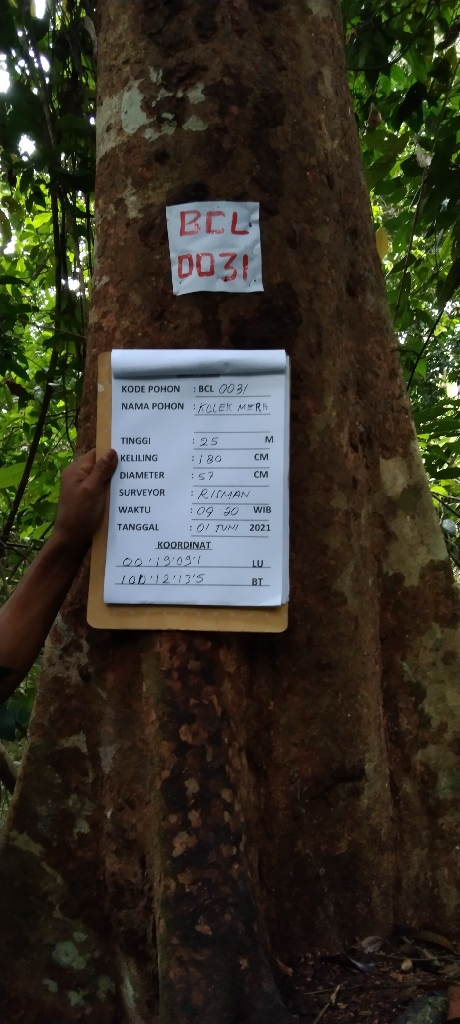 BCL
0031
KODE POHON : BCL 0031
NAMA POHON : KOLEK MERA
TINGGI : 25 M
KELILING : 180 CM
DIAMETER : 57 CM
SURVEYOR : RISMAN
WAKTU : 09 20 WIB
TANGGAL : 01 JUNI 2021
KOORDINAT
00'19'09'1 LU
100'12'13'5 BT